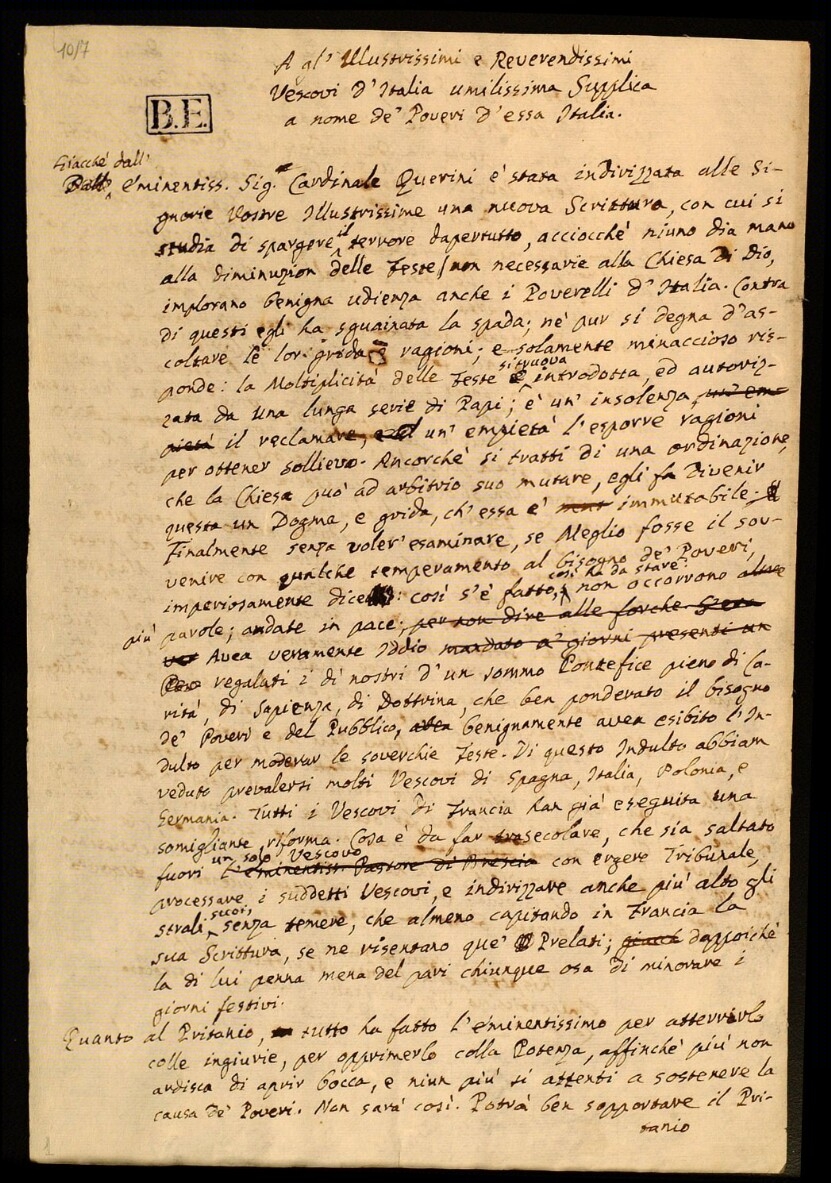 10/7
A gl' Illustrissimi e Reverendissimi
Vescovi d'Italia umilissima Supplica
a nome de' Poveri d'essa Italia.
B.E.
Giacchè dall'
Dall' Eminentiss. Sig.re Cardinale Querini è stata indirizzata alle Si-
gnorie Vostre Illustrissime una nuova Scrittura, con cui si
studia di spargere il terrore dapertutto, acciocchè niuno dia mano
alla diminuzion delle Feste non necessarie alla Chiesa di Dio,
implorano benigna udienza anche i Poverelli d'Italia. Contra
di questi egli ha sguainata la spada; nè pur si degna d'as-
coltare le lor grida e ragioni; e solamente minaccioso ris-
ponde: la Moltiplicità delle Feste è si truova introdotta, ed autoriz-
zata da una lunga serie di Papi; è un' insolenza, un' em-
pietà il reclamare, ed un' empietà l'esporre ragioni
per ottener sollievo. Ancorchè si tratti di una ordinazione,
che la Chiesa può ad arbitrio suo mutare, egli fa divenir
questa un Dogma, e grida, ch'essa è immutabile.
Finalmente senza voler' esaminare, se Meglio fosse il sov-
venire con qualche temperamento al bisogno de' Poveri,
imperiosamente dice: così s'è fatto, così ha da stare: non occorrono altre
più parole; andate in pace; per non dire alle forche
Avea veramente Iddio mandato a' giorni presenti un
regalati i dì nostri d'un sommo Pontefice pieno di Ca-
rità, di Sapienza, di Dottrina, che ben ponderato il bisogno
de' Poveri e del Pubblico, avea benignamente avea esibito l'In-
dulto per moderar le soverchie Feste. Di questo Indulto abbiam
veduto prevalersi molti Vescovi di Spagna, Italia, Polonia, e
Germania. Tutti i Vescovi di Francia han già eseguita una
somigliante riforma. Cosa è da far trasecolare, che sia saltato
fuori un solo Vescovo l'eminentiss. Pastore di Brescia con ergere Tribunale,
processare i suddetti Vescovi, e indirizzare anche più alto gli
strali suoi, senza temere, che almeno capitando in Francia la
sua Scrittura, se ne risentano que' Prelati; giacchè dappoichè
la di lui penna mena del pari chiunque osa di minorare i
giorni festivi.
Quanto al Pritanio, tutto ha fatto l'Eminentissimo per atterrirlo
colle ingiurie, per opprimerlo colla Potenza, affinchè più non
ardisca di aprir bocca, e niun più si attenti a sostenere la
causa de' Poveri. Non sarà così. Potrà ben sopportare il Pri-
tanio
1